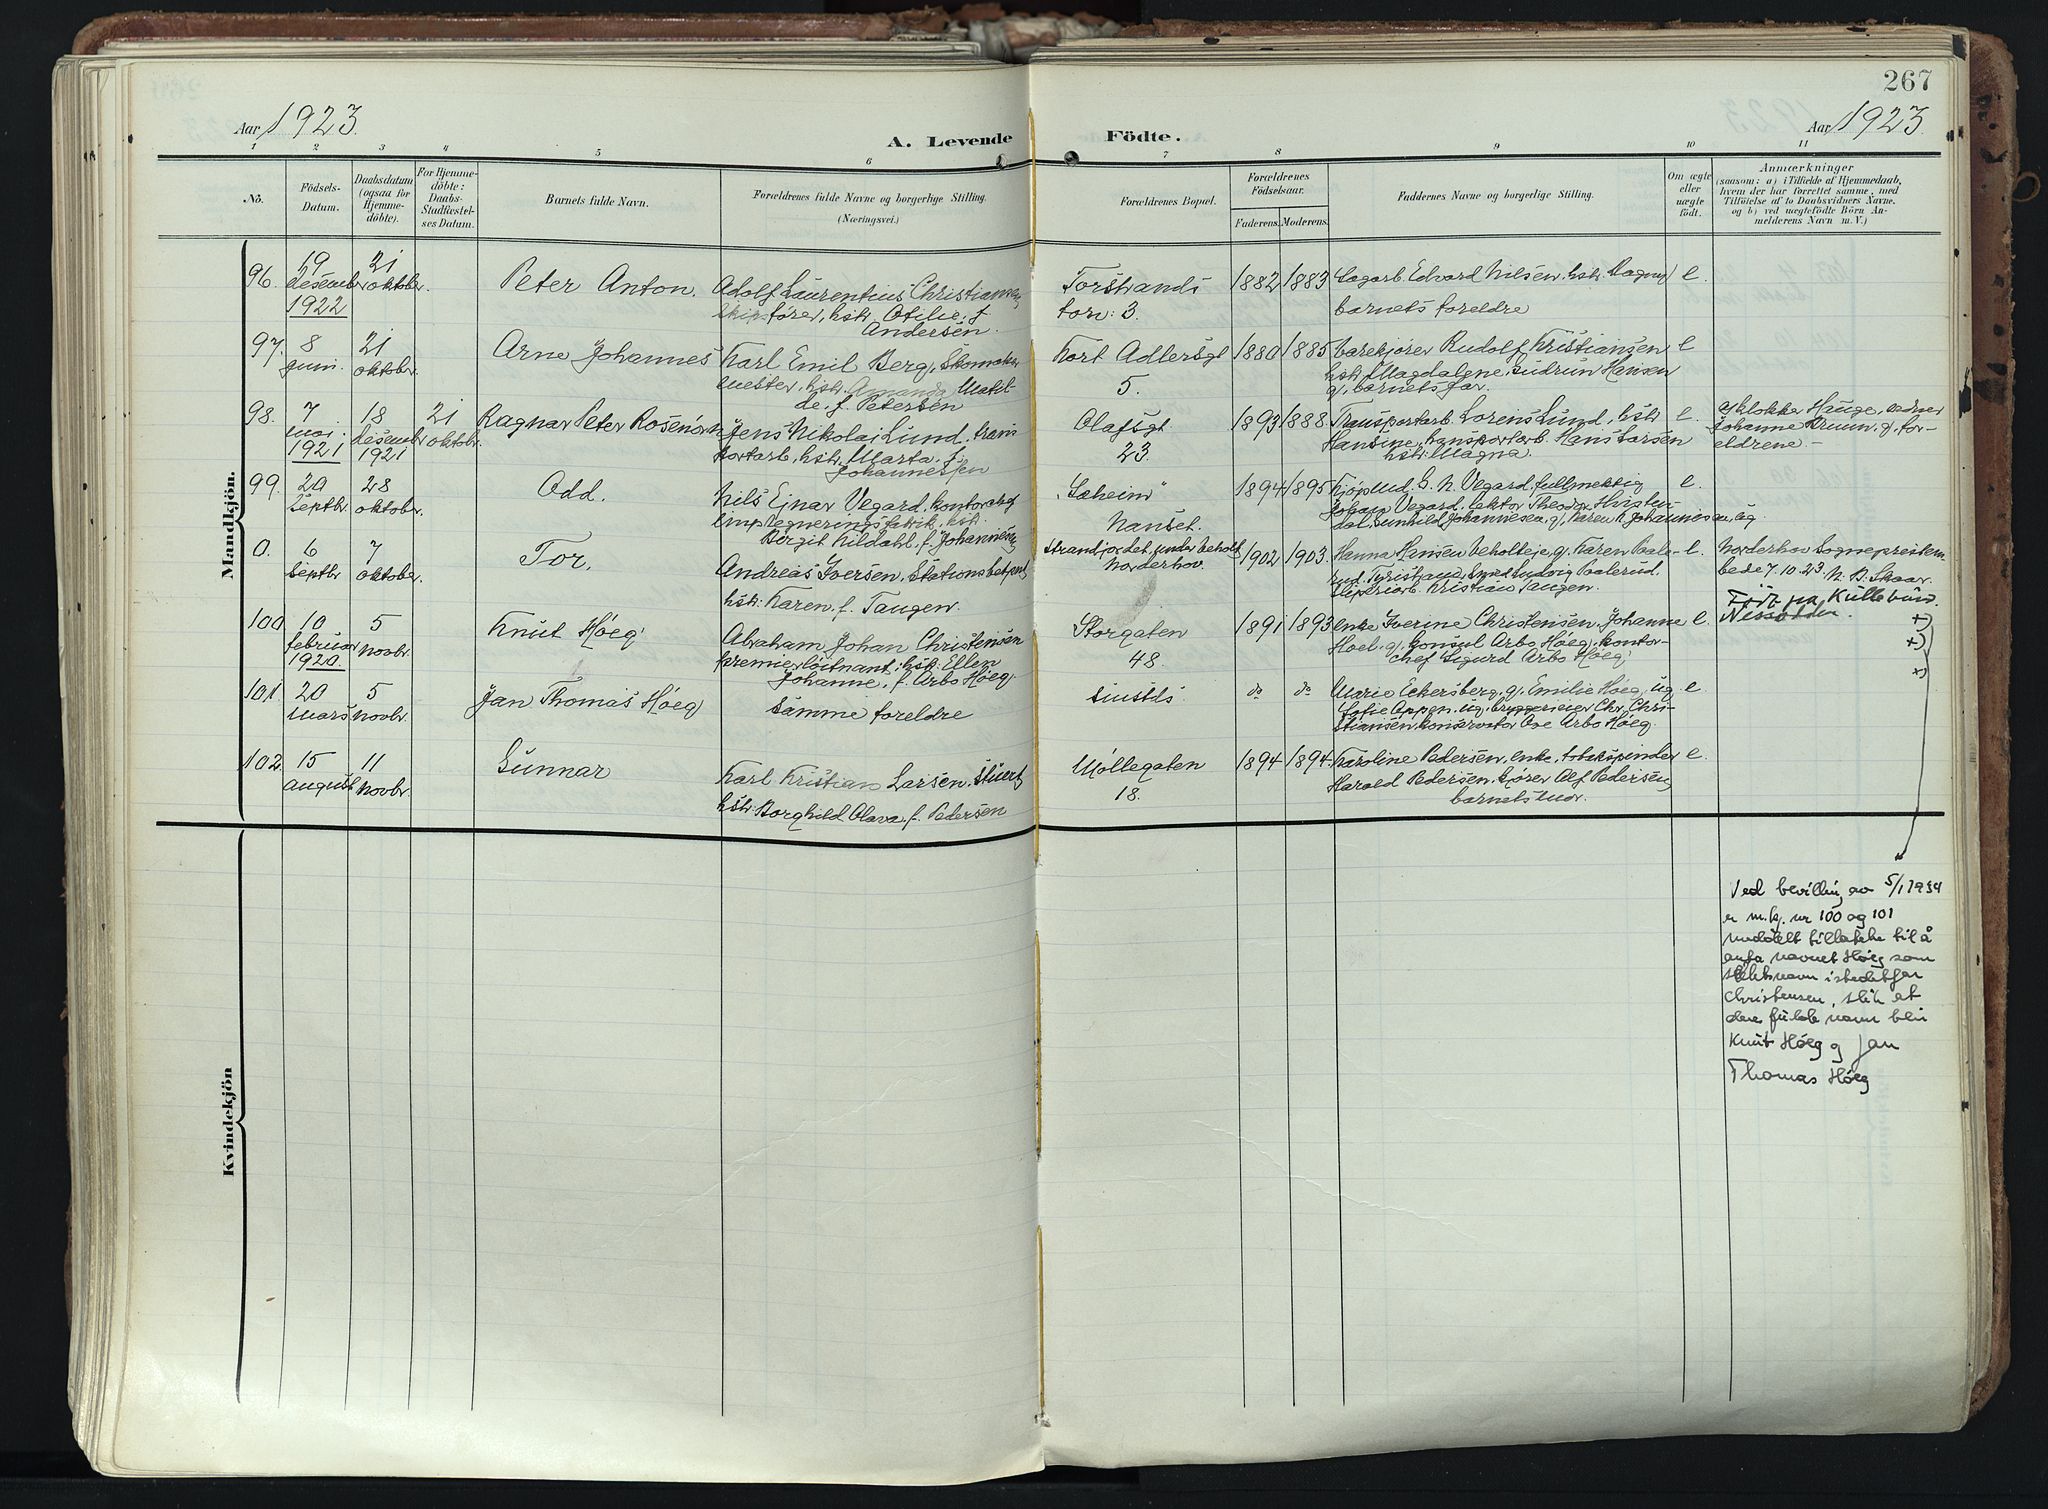 267
Aar 1923.
A. Levende Födte.
Aar 1923.
1 2 3 4 5 6 7 8 9 10 11
No.
Födsels-
Datum.
Daabsdatum
(ogsaa for
Hjemme-
döbte).
For Hjemme-
döbte:
Daabs-
Stadfæstel-
ses Datum.
Barnets fulde Navn.
Forældrenes fulde Navne og borgerlige Stilling.
(Næringsvei.)
Forældrenes Bopæl.
Forældrenes
Födselsaar.
Faderens. Moderens.
Faddernes Navne og borgerlige Stilling.
Om ægte
eller
uægte
födt.
Anmærkninger
(saasom: a) i Tilfælde af Hjemmedaab,
hvem der har forrettet samme, med
Tilföielse af to Daabsvidners Navne.
og b) ved uægtefödte Börn An-
melderens Navn m. V.)
Mandkjön.
96. 19 desember 1922
21 oktober.
Peter Anton.
Adolf Laurentius Christiansen,
skipsfører, hstr. Otilie, f.
Andersen.
Torstrands
torv: 3.
1882 1883
Sagarb. Edvard Nilsen, hstr. Dagny
barnets foreldre
e.
97. 8 juni.
21 oktober.
Arne Johannes
Karl Emil Berg, Skomaker
mester, hstr. Amanda Matil-
de, f. Petersen
Kort Adlersgt
5.
1880 1885
Rudolf Kristiansen
hstr. Magdalene, Gudrun Hansen
g, barnets far.
e
98. 7 mai 1921
18 desembr 1921
21 oktobr.
Ragnar Peter Rosenörn
Jens Nikolai Lund, trans
portarb., hstr. Marta, f.
Johannessen
Olafsgt
23.
1893 1888.
Transportarb. Lorens Lund, hstr.
Hansine, transportarb. Hans Larsen
hstr. Magna.
e.
av klokker Hauge, vidner
Johanne Bruun, g, for-
eldrene –
99. 20 septbr.
28 oktober.
Odd.
Nils Ejnar Vegard, kontorchef
impregneringsfabrik, hstr.
Birgit Kildahl, f. Johannesen
"Solheim"
Nanset.
1894 1895
G. N. Vegard, fullmektig
Johan Vegard, lektor Theodor
Gunhild Johannesen, g, Karen R. Johannesen, ug
e.
0. 6 septbr
7 oktober.
Tor.
Andreas Iversen, Stationsbetjent
hstr: Karen, f. Tangen.
Norderhov.
1902 1903.
Hanna Hansen
Kristian Tangen.
e.
Norderhov Sogneprestem-
bede 7.10.23. N. B. Skaar.
100. 10 februar 1920.
5 novbr.
Knut Høeg
Abraham Johan Christensen
premierløitnant, hstr: Ellen
Johanne, f. Arbo Høeg.
Storgaten
48.
1891 1893
enke Iverine Christensen, Johanne
Hoel. g, konsul Arbo Høeg, kontor-
chef Sigurd Arbo Høeg
e
+)
101. 20 mars
5 novbr.
Jan Thomas Høeg
samme foreldre
sinstds
do do
Marie Eckersberg, g, Emilie Høeg, ug,
Sofie Appen, ug, bryggerieier Chr. Chri-
stiansen, konservator Ove Arbo Høeg.
e.
+)
102. 15 august
11 novbr.
Gunnar
Karl Kristian Larsen, Stuert
hstr. Borghild Olava, f. Pedersen
Møllegaten
18.
1894 1894.
Karoline Pedersen, enke, tobakspinder
Harald Pedersen, kjører Alf Pedersen,
barnets mor.
e.
Kvindekjön
Ved bevilling av 5/1 1934
er m.kj. nr 100 og 101
meddelt tillatelse til å
anta navnet Høeg som
slektsnavn istedetfor
Christensen, slik at
deres fulde navn blir
Knut Høeg og Jan
Thomas Høeg